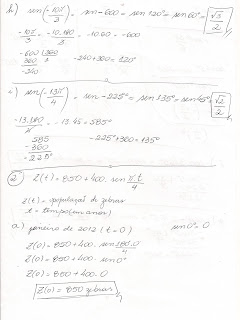 b) sen(-10π/3) = sen -600° = sen 120° = sen 60° = √3/2
-10π/3 = -10.180/3 = -10.60 = -600
-600 |360
360 3
-240 -240+360 = 120°
c) sen(13π/4) = sen -225° = sen 135° = sen 45° = √2/2
-13.180/4 = -13.45 = 585°
585
-360
-225° -225°+360 = 135°
2) Z(t) = 850 + 400. sen π.t/4
Z(t) = população de zebras
t = tempo (em anos)
a) janeiro de 2012 (t = 0) sen 0° = 0
Z(0) = 850 + 400. sen 180.0/4
Z(0) = 850 + 400. sen 0°
Z(0) = 850 + 400. 0
Z(0) = 850 zebras